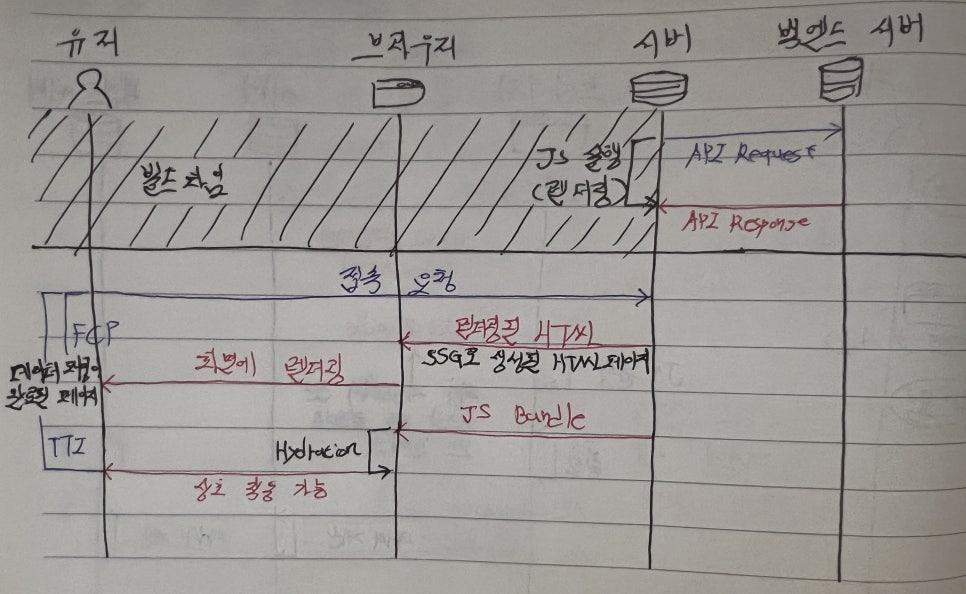 유저
브라우저
서버
백엔드 서버
빌드 타임
JS 실행
(렌더링)
API Request
API Response
접속 요청
FCP
렌더링된 HTML
SSG로 생성된 HTML 페이지
화면에 렌더링
데이터 패칭이
완료된 페이지
JS Bundle
TTI
Hydration
상호 작용 가능